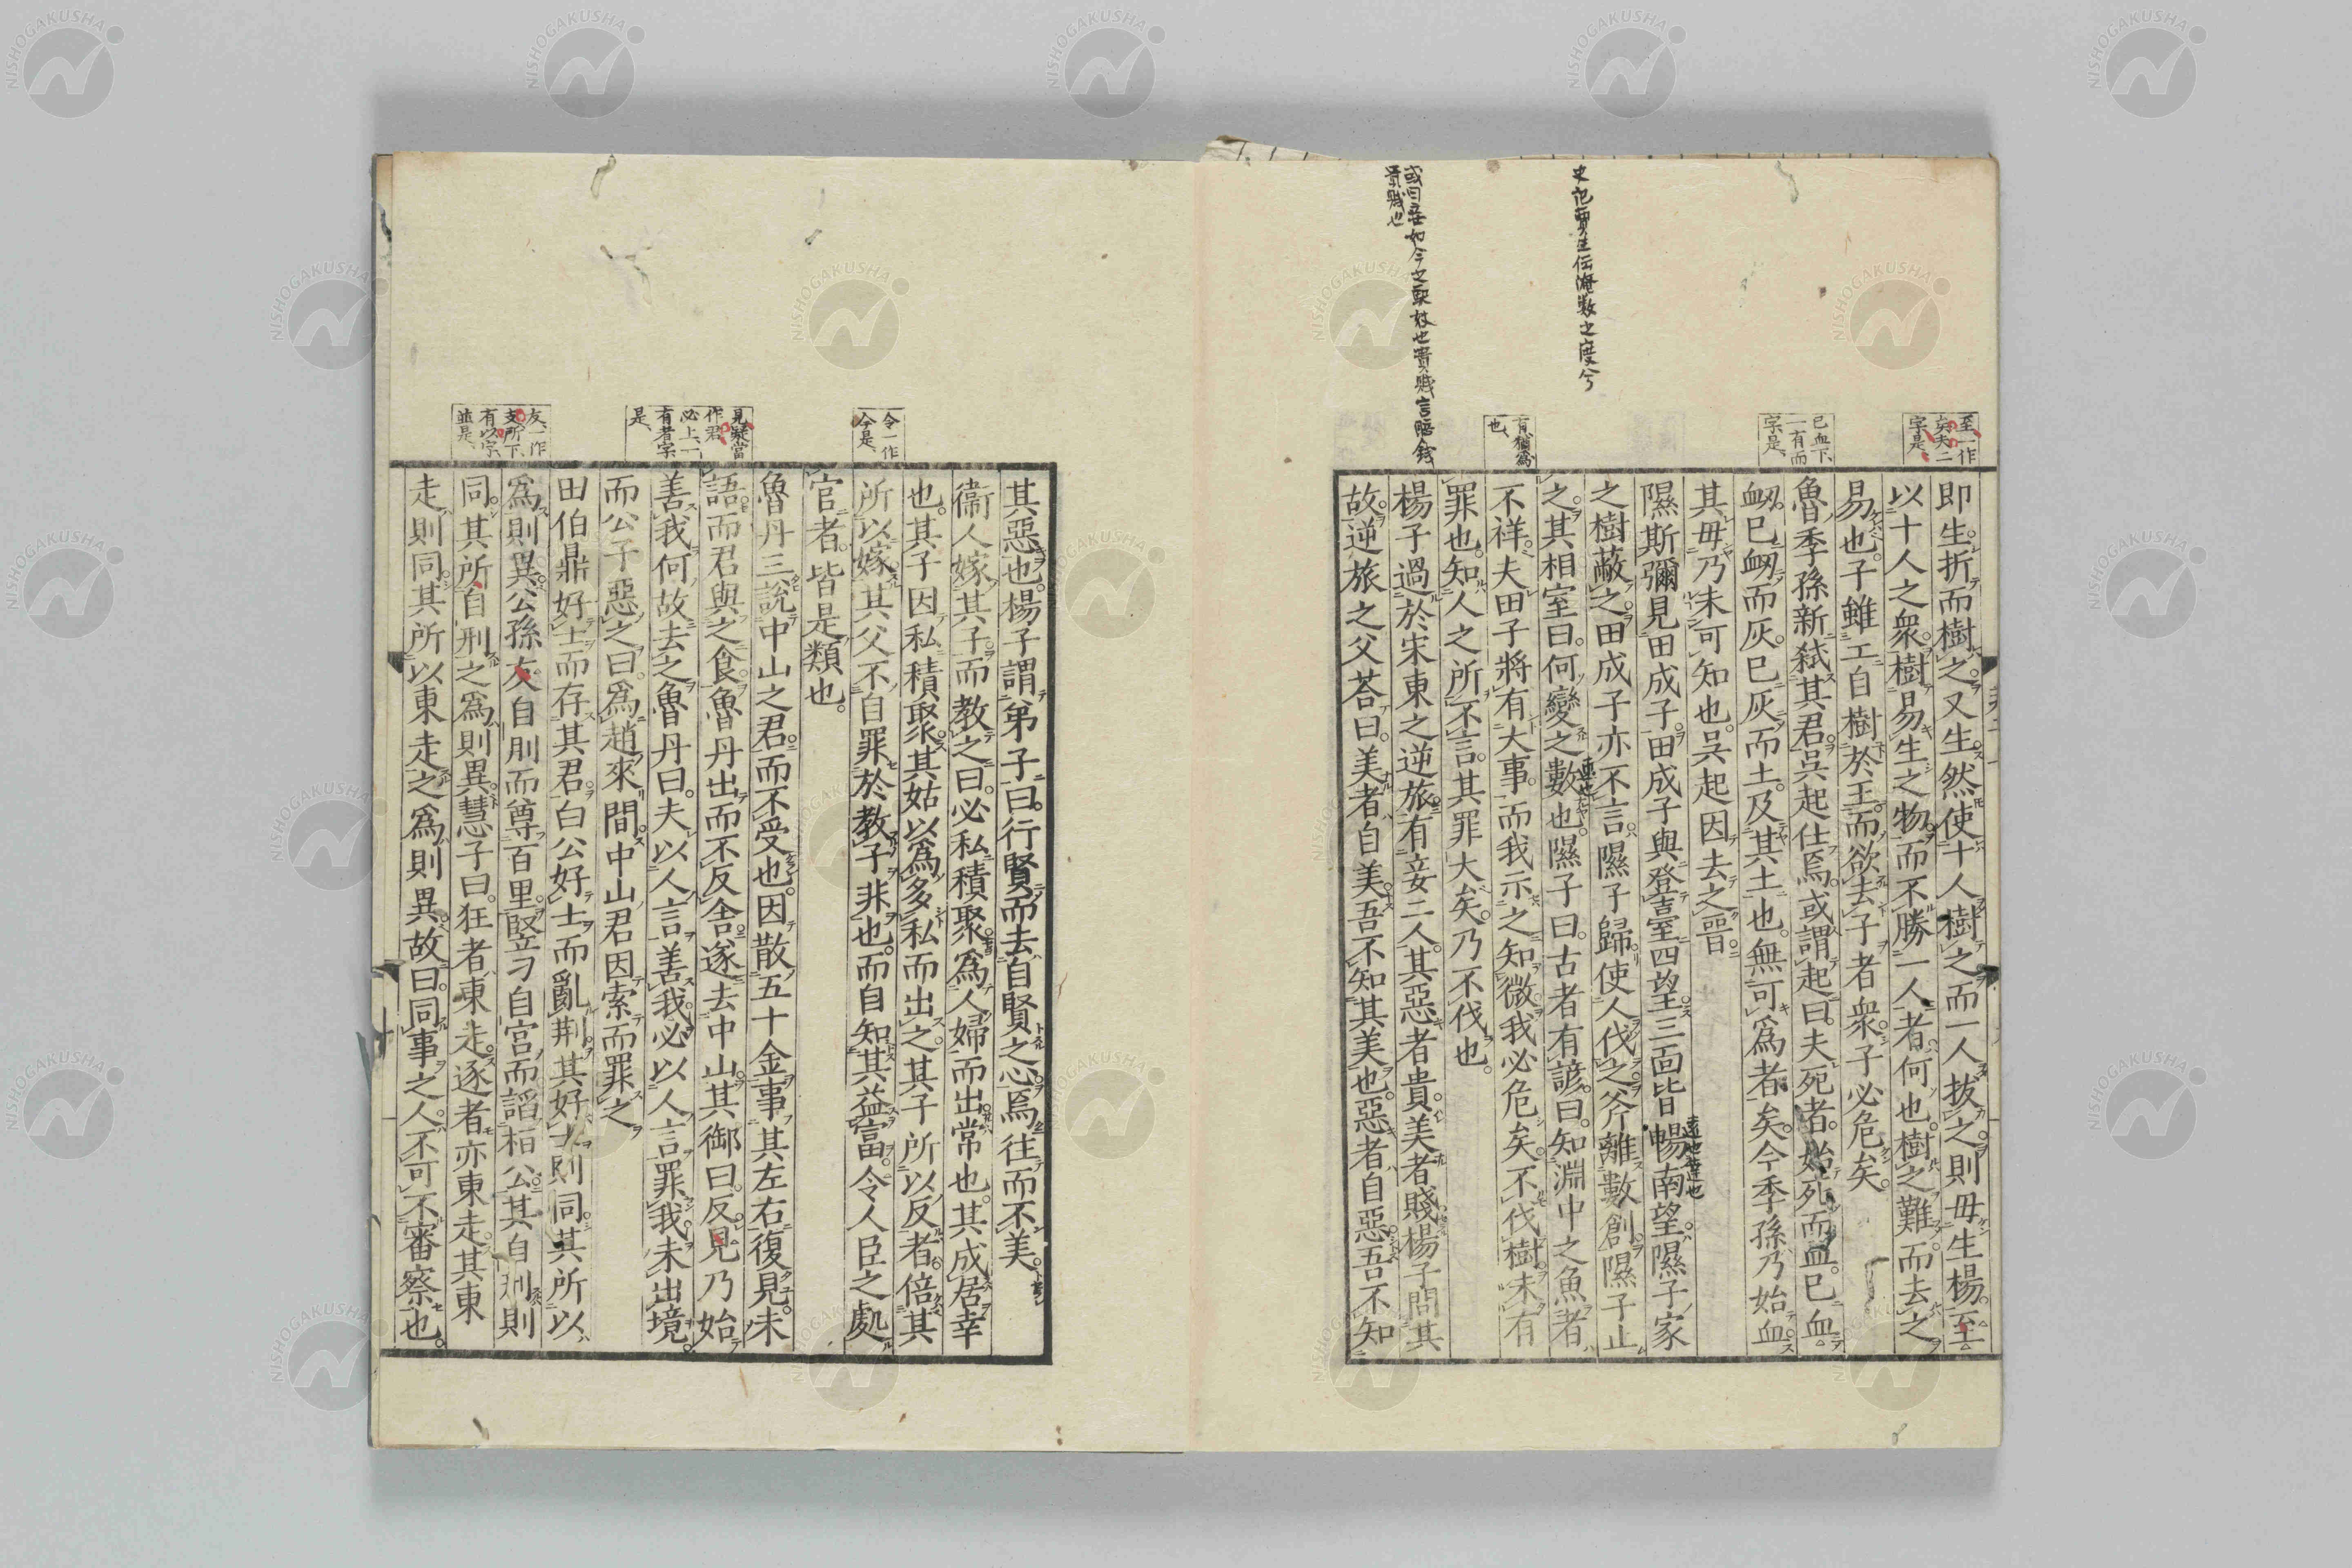 史記賈生伝淹数之度兮
或曰妾如今之娶妓也貴賤言賠銭
貴賤也
至一作
矣夫二
字是、
已血下、
一有而
字是、
有猶爲
也、
即生。折而樹之又生。然使十人樹之而一人拔之。則毋生楊。至
以十人之衆。樹易生之物。而不勝一人者。何也。樹之難。而去之
易也。子雖工自樹於王。而欲去子者衆。子必危矣。
魯季孫新弑其君。吳起仕焉。或謂起曰。夫死者。始死而血。已血。
衂。已衂而灰。已灰而土。及其土也。無可爲者矣。今季孫乃始血
其毋乃未可知也。吳起因去之晉。
隰斯彌見田成子。田成子與登臺四望。三面皆暢。南望。隰子家
之樹蔽之。田成子亦不言。隰子歸。使人伐之。斧離數創。隰子止
之。其相室曰。何變之數也。隰子曰。古者有諺。曰。知淵中之魚者
不祥。夫田子將有大事。而我示之知微。我必危矣。不伐樹。未有
罪也。知人之所不言。其罪大矣。乃不伐也。
楊子過於宋東之逆旅。有妾二人。其惡者貴。美者賤。楊子問其
故。逆旅之父荅曰。美者自美。吾不知其美也。惡者自惡。吾不知
令一作
今是、
見疑當
作君
必上、一
有者字
是、
友、一作
支、所下、
有以字、
並是、
其惡也。楊子謂弟子曰。行賢而去自賢之心。焉往而不美。
衞人嫁其子。而教之曰。必私積聚。爲人婦而出。常也。其成居幸
也。其子因私積聚。其姑以爲多私而出之。其子所以反者。倍其
所以嫁。其父不自罪於教子非也。而自知其益富。令人臣之處
官者。皆是類也。
魯丹三說中山之君。而不受也。因散五十金事其左右。復見。未
語。而君與之食。魯丹出。而不反舍。遂去中山。其御曰。反見。乃始
善我。何故去之。魯丹曰。夫以人言善我。必以人言罪我。未出境。
而公子惡之曰。爲趙來閒中山。君因索而罪之。
田伯鼎好士而存其君。白公好士而亂荆。其好士則同。其所以
爲則異。公孫友自刖而尊百里。竪刁自宮而謟桓公。其自刑則
同。其所自刑之爲則異。慧子曰。狂者東走。逐者亦東走。其東
走則同。其所以東走之爲則異。故曰。同事之人。不可不審察也。